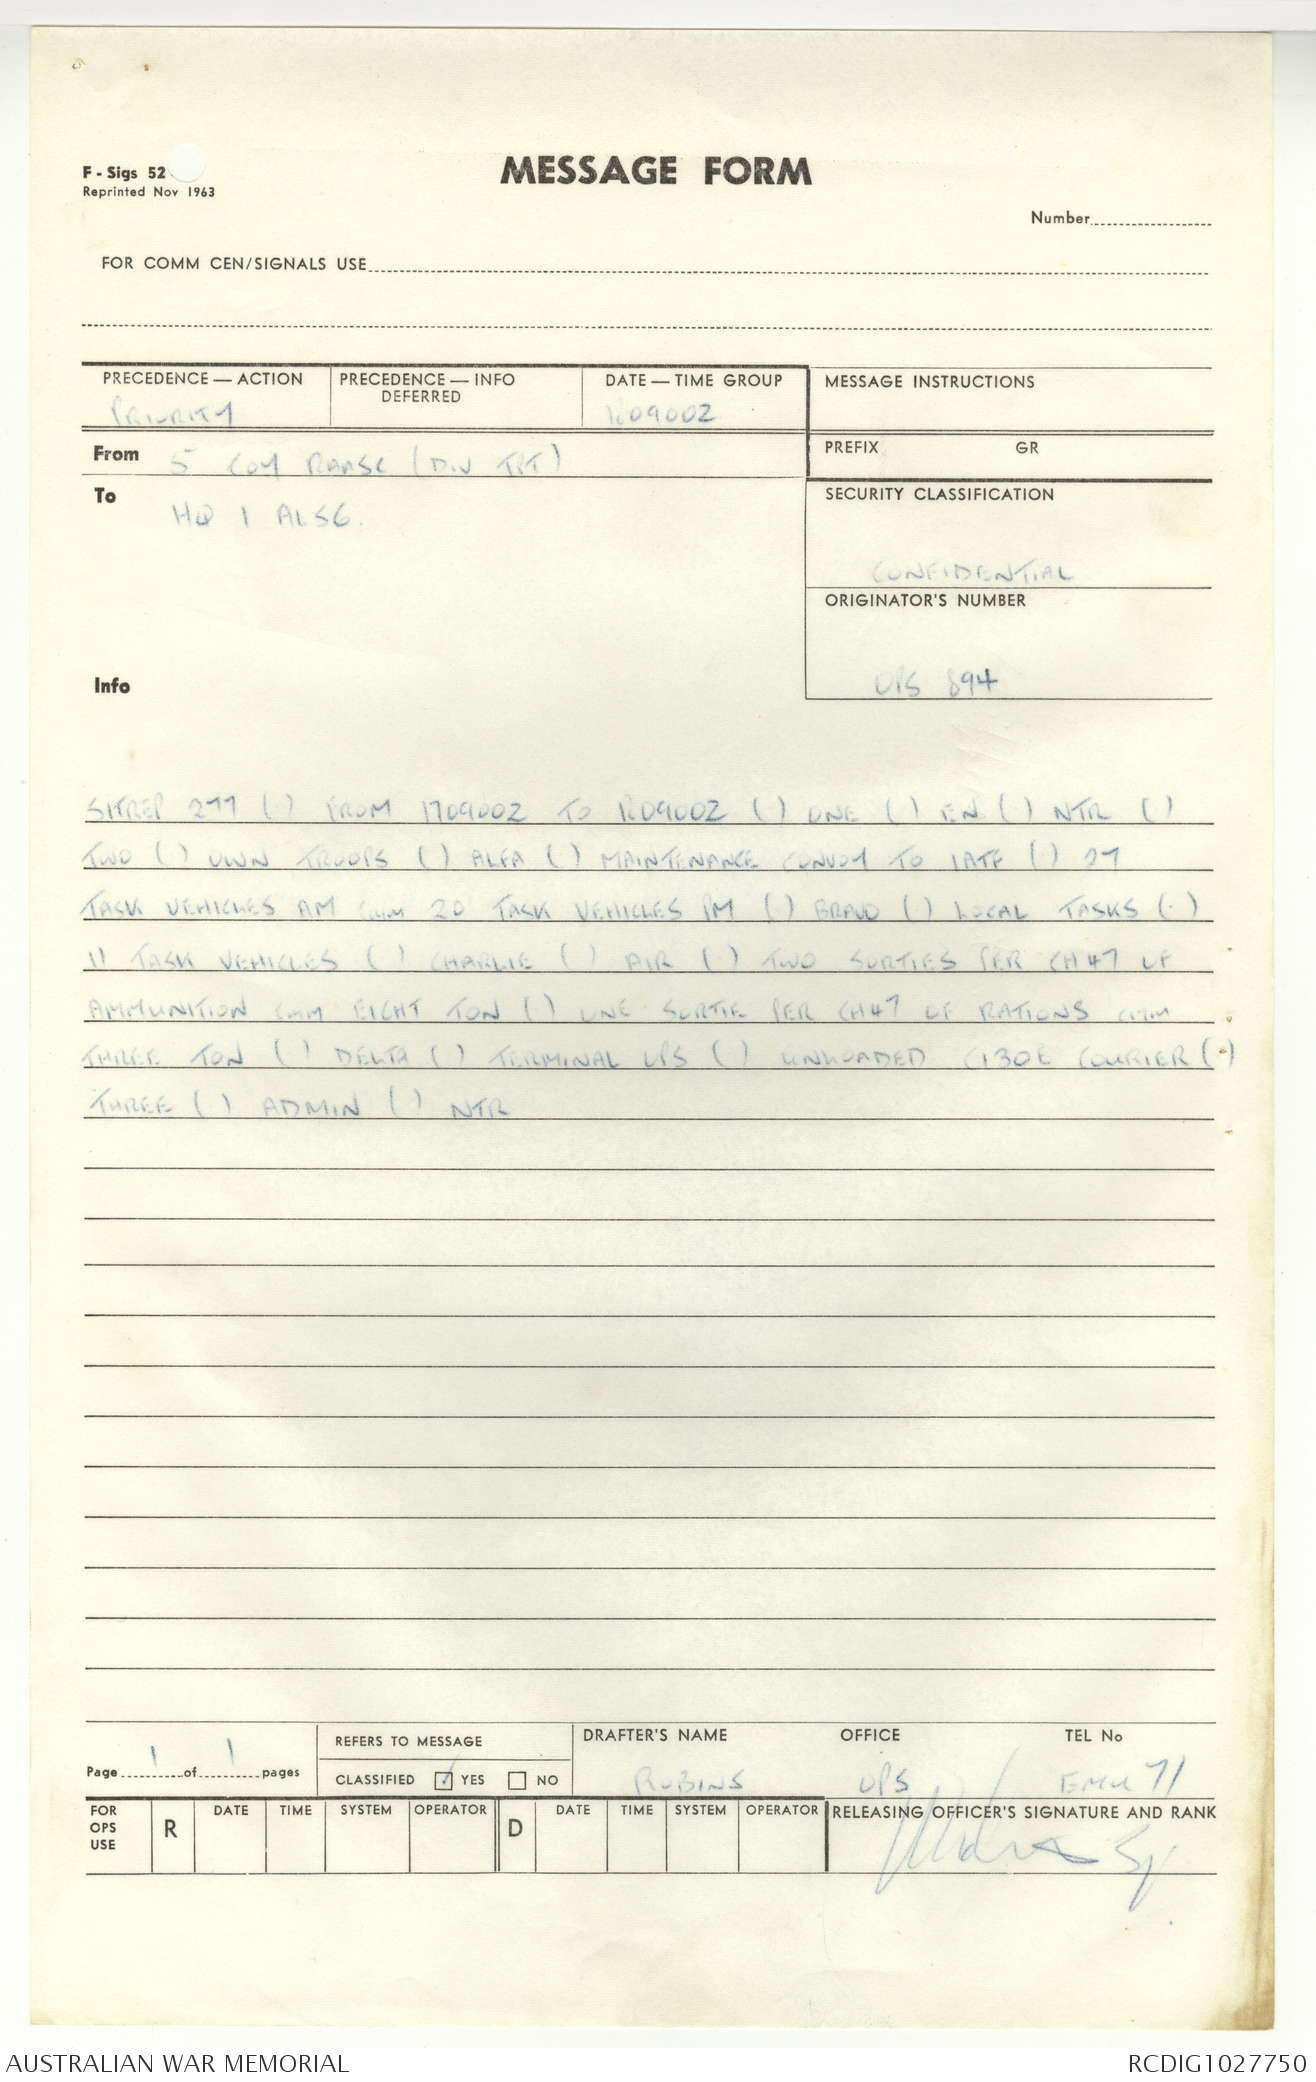 F - Sigs 52
Reprinted Nov 1963
MESSAGE FORM
Number
FOR COMM CEN/SIGNALS USE
PRECEDENCE — ACTION
PRIORITY
PRECEDENCE — INFO
DEFERRED
DATE — TIME GROUP
180900Z
MESSAGE INSTRUCTIONS
From 5 COY RAASC (DIV TPT)
PREFIX GR
To HQ 1 ALSG
SECURITY CLASSIFICATION
CONFIDENTIAL
ORIGINATOR'S NUMBER
OPS 894
Info
SITREP 277 (.) FROM 170900Z TO 180900Z (.) ONE (.) EN (.) NTR (.)
TWO (.) OWN TROOPS (.) ALFA (.) MAINTENANCE CONVOY TO 1ATF (.) 27
TASK VEHICLES AM CMM 20 TASK VEHICLES PM (.) BRAVO (.) LOCAL TASKS (.)
11 TASK VEHICLES (.) CHARLIE (.) AIR (.) TWO SORTIES PER CH47 OF
AMMUNITION CMM EIGHT TON (.) ONE SORTIE PER CH47 OF RATIONS CMM
THREE TON (.) DELTA (.) TERMINAL OPS (.) UNLOADED C130E COURIER (.)
THREE (.) ADMIN (.) NTR
Page 1 of 1 pages
REFERS TO MESSAGE
CLASSIFIED YES NO
DRAFTER'S NAME
ROBINS
OFFICE
OPS
TEL No
EMU 71
FOR
OPS
USE
R DATE TIME SYSTEM OPERATOR
D DATE TIME SYSTEM OPERATOR
RELEASING OFFICER'S SIGNATURE AND RANK
AUSTRALIAN WAR MEMORIAL
RCDIG1027750